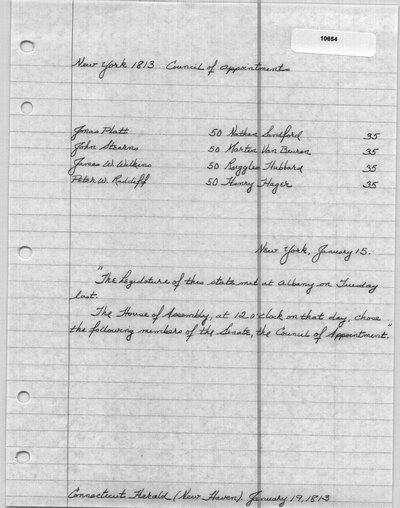 10654
New York 1813 Council of Appointments
Jonas Platt 50 Nathan Sandford 35
John Stearns 50 Martin Van Beuren 35
James W. Wilkins 50 Ruggles Hubbard 35
Peter W. Radcliff 50 Henry Hager 35
New York, January 15.
"The Legislature of this state met at Albany on Tuesday
last.
The House of Assembly, at 12 o'clock on that day, chose
the following members of the Senate, the Council of Appointment."
Connecticut Herald (New Haven). January 19, 1813